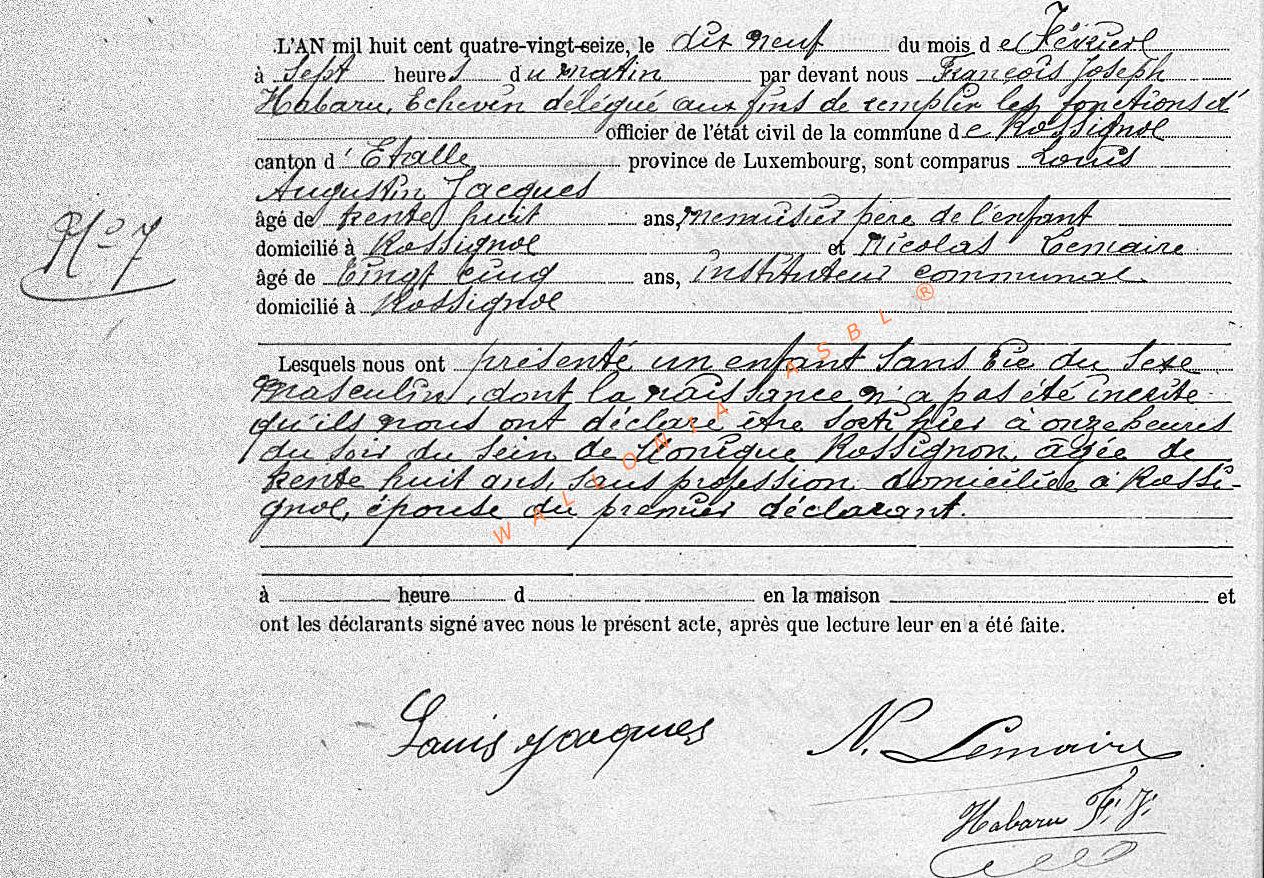 L'AN mil huit cent quatre-vingt-seize, le dix neuf du mois de Février
à sept heures du matin par devant nous François Joseph
Habaru, Echevin délégué aux fins de remplir les fonctions d'
officier de l'état civil de la commune de Rossignol
canton d'Etalle province de Luxembourg, sont comparus Louis
Augustin Jacques
N° 7
âgé de trente huit ans, menuisier père de l'enfant
domicilié à Rossignol et Nicolas Lemaire
âgé de vingt cinq ans, instituteur communal
domicilié à Rossignol
Lesquels nous ont présenté un enfant sans vie du sexe
masculin, dont la naissance n'a pas été inscrite
qu'ils nous ont déclaré être sorti hier à onze heures
du soir du sein de Monique Rossignon, âgée de
trente huit ans, sans profession domiciliée à Rossi-
gnol, épouse du premier déclarant.
WALLONIA ASBL ®
à heure d en la maison et
ont les déclarants signé avec nous le présent acte, après que lecture leur en a été faite.
Louis Jacques N. Lemaire
Habaru F. J.